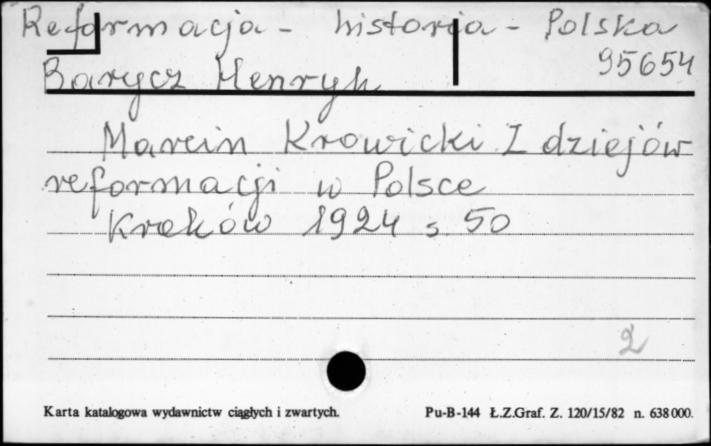 Reformacja - historja - Polska
95654
Barycz Henryk
Marcin Krowicki Z dziejów
reformacji w Polsce
Kraków 1924 s. 50
2
Karta katalogowa wydawnictw ciągłych i zwartych. Pu-B-144 Ł.Z.Graf. Z. 120/15/82 n. 638000.